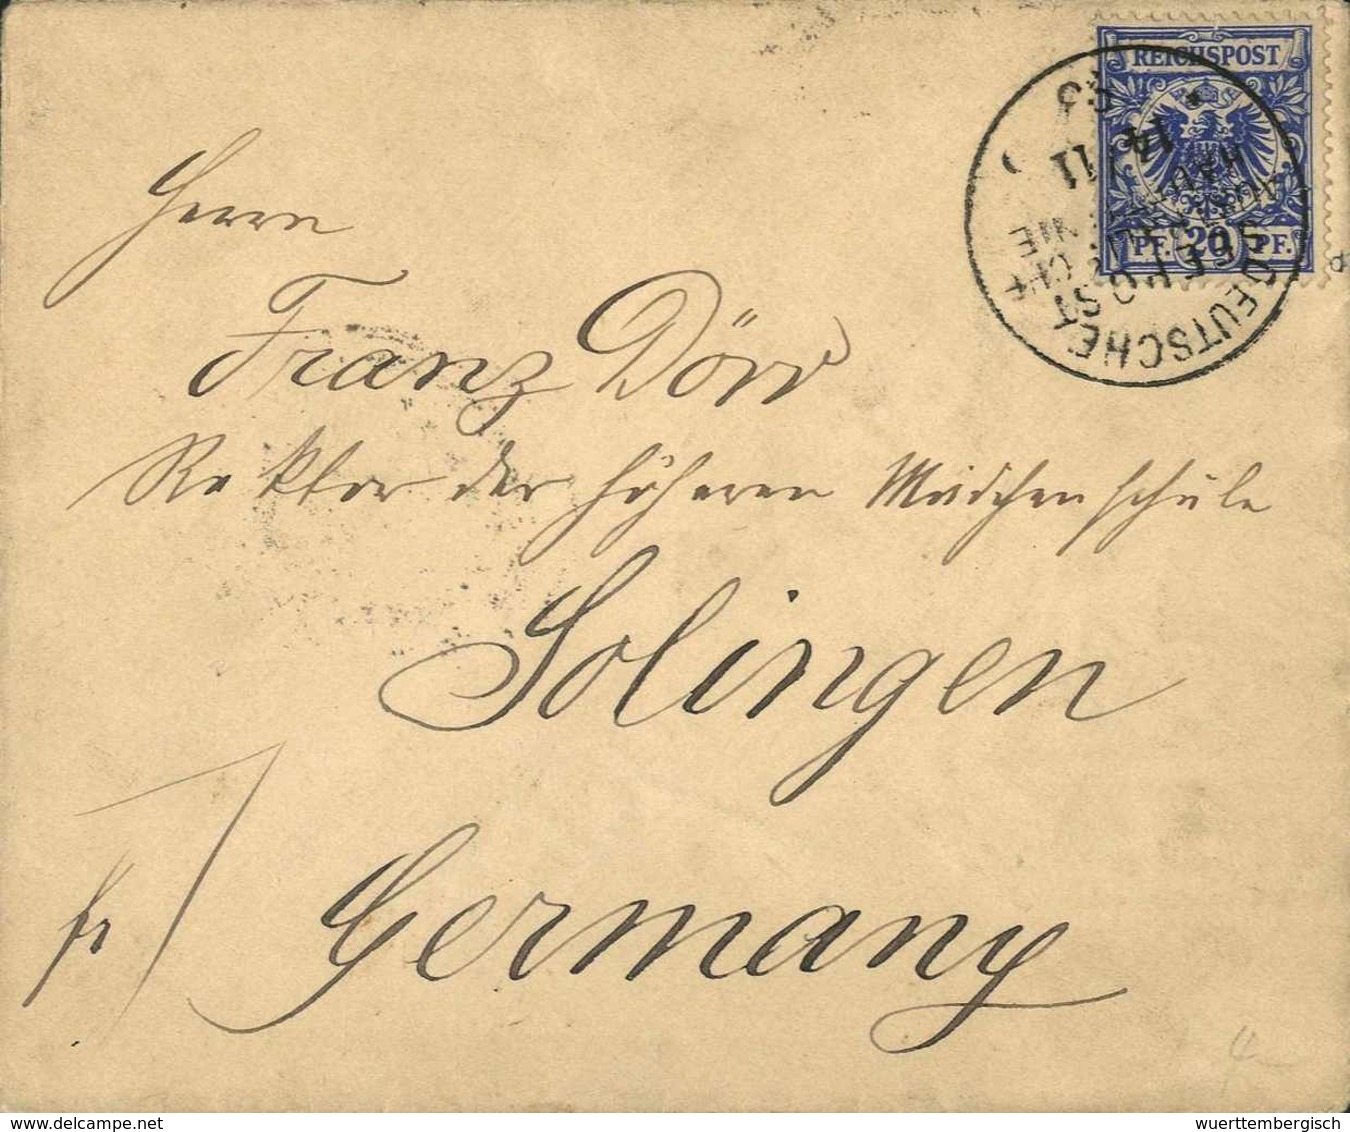 REICHSPOST
PF. 20 PF.
DEUTSCHE
SEEPOST
14 11
Herrn
Franz Dörr
Rektor der höheren Mädchenschule
Solingen
fr
Germany
wuerttembergisch